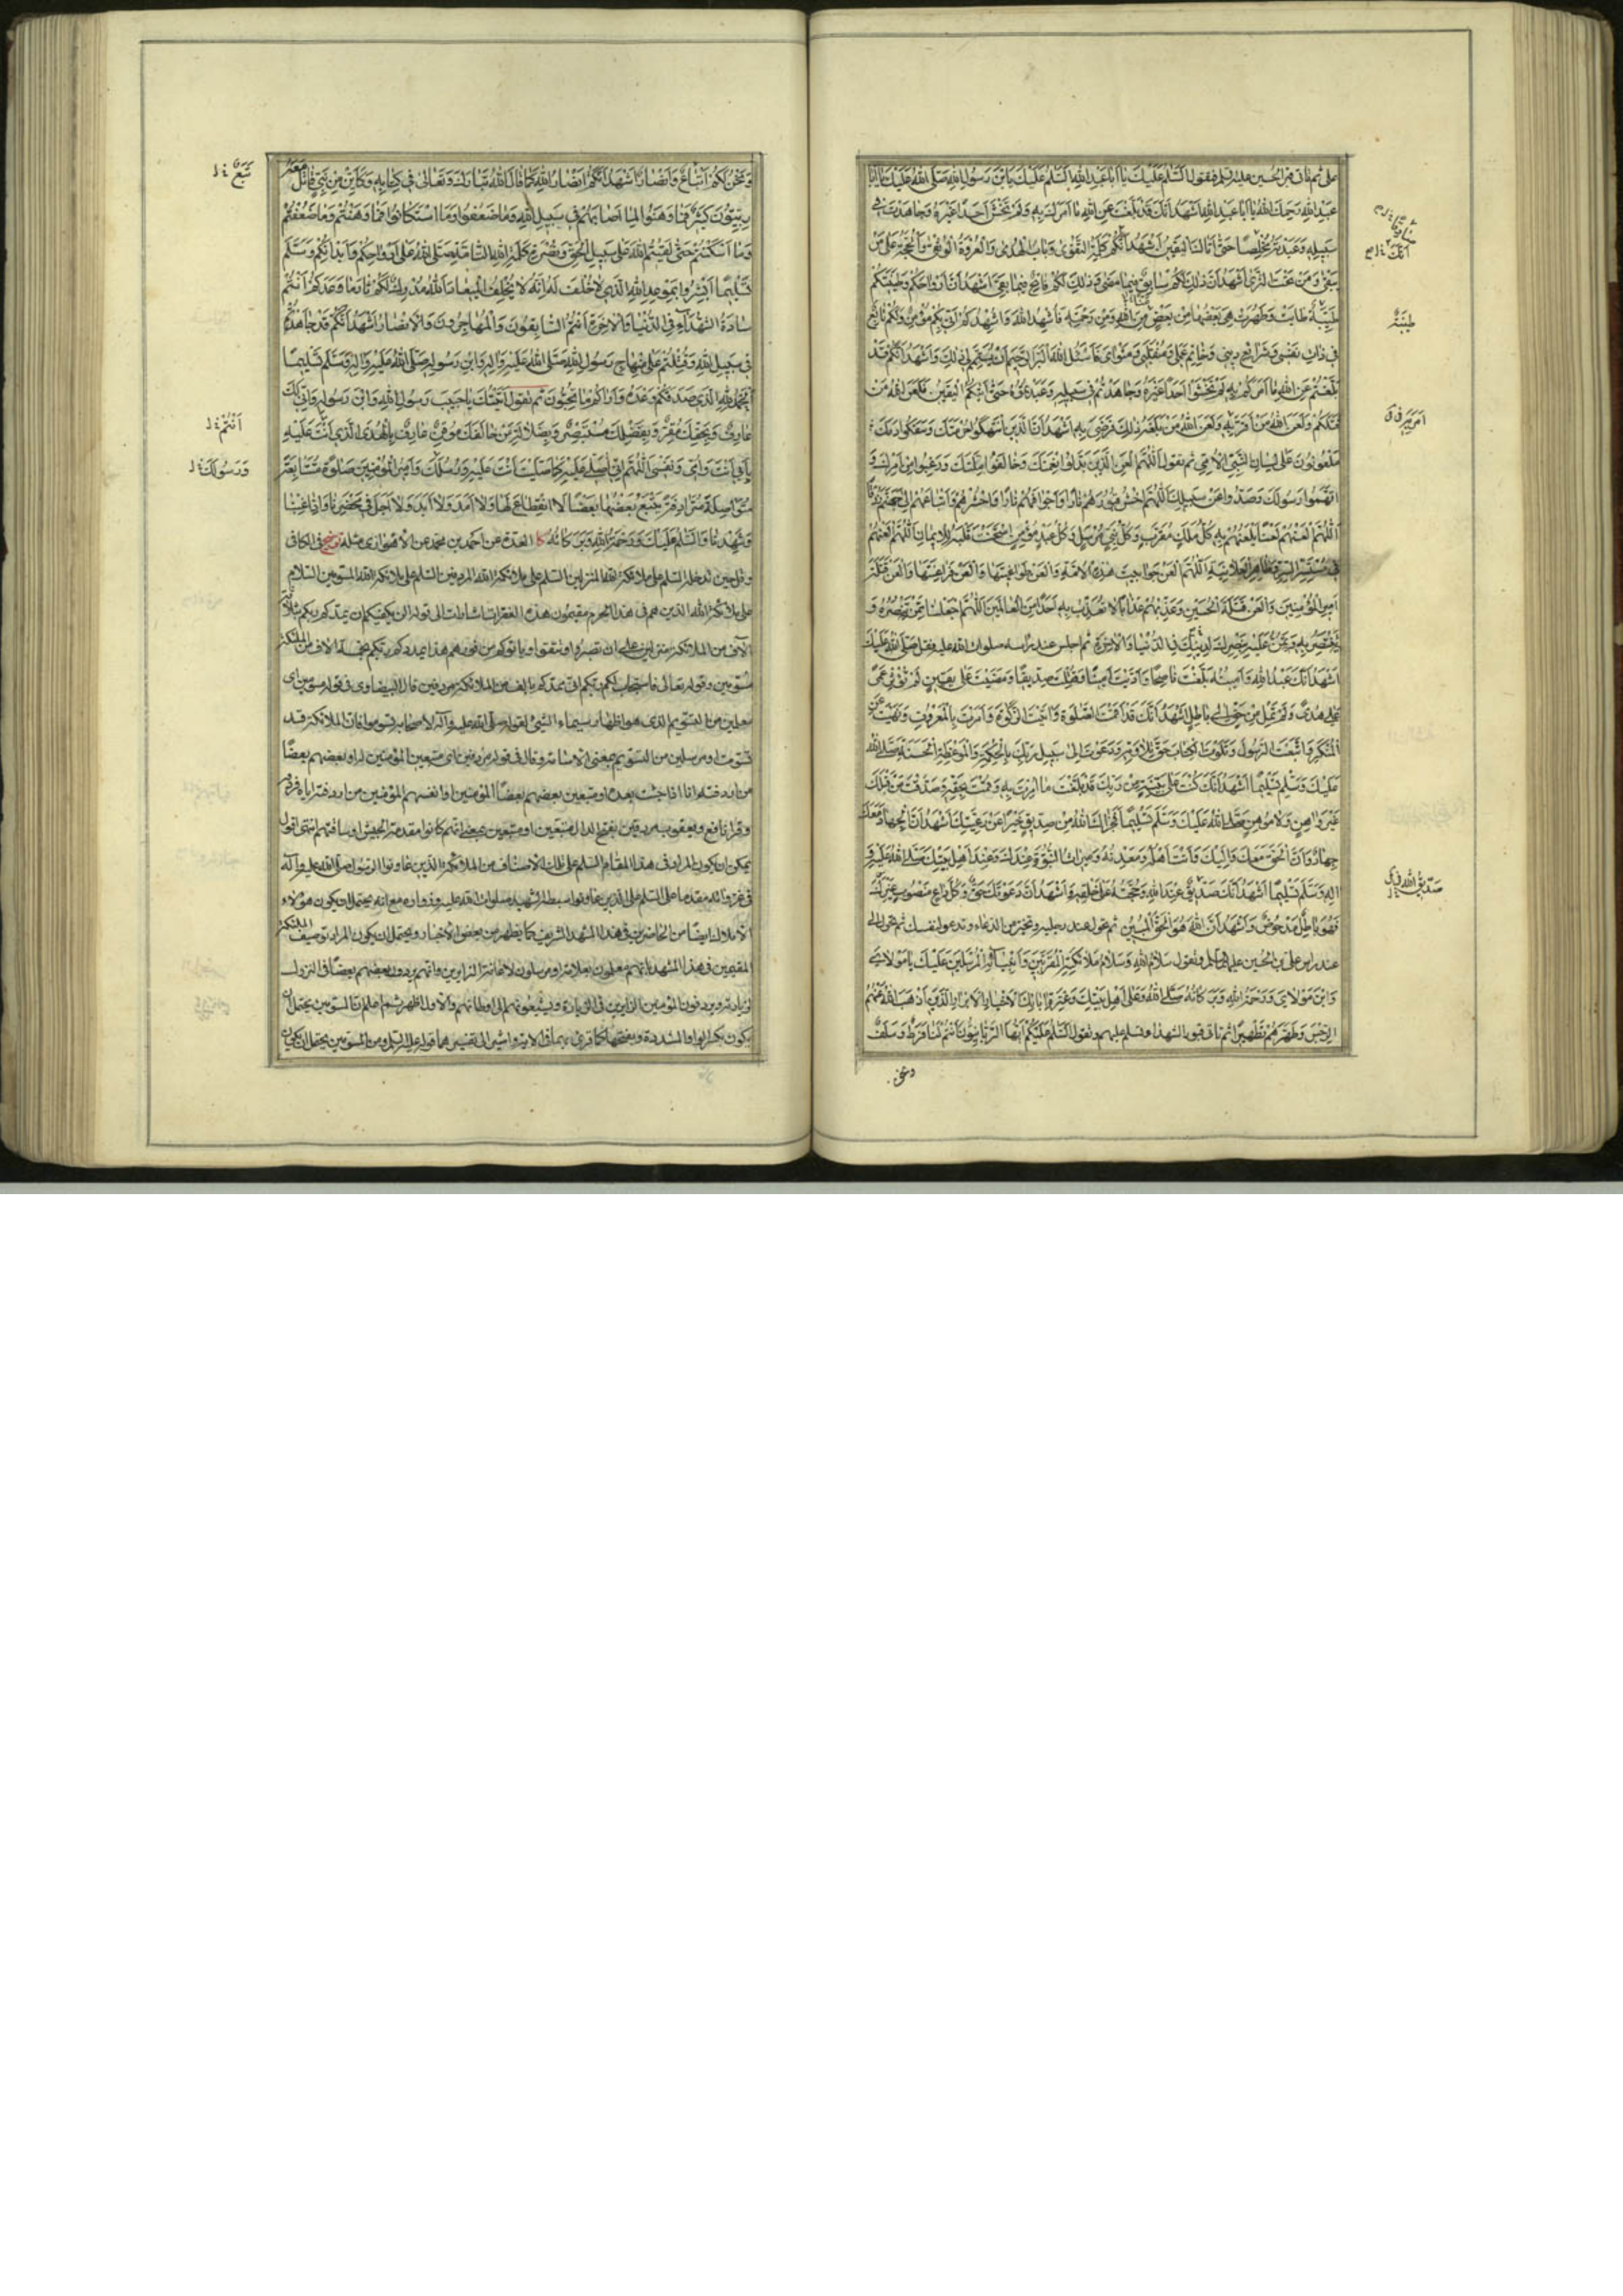 على ثم تأتي قبر الحسين عليه السلم فتقول السلم عليك يا ابا عبد الله السلم عليك يا بن رسول الله صلى الله عليك يا ابا
عبد الله رحمك الله يا ابا عبد الله اشهد انك قد بلغت عن الله ما امرك به ولم تخش احدا غيره وجاهدت في
سبيله وعبدته مخلصا حتى اتاك اليقين اشهد انكم كلمة التقوى وباب الهدى والعروة الوثقى والحجة على من
يبقى ومن تحت الثرى اشهد ان ذلك لكم سابق فيما مضى وذلك لكم فاتح فيما بقي اشهد ان ارواحكم وطينتكم
طيبة طابت وطهرت هي بعضها من بعض من الله ومن رحمته فاشهد الله واشهدكم اني بكم مؤمن ولكم تابع
في ذات نفسي وشرائع ديني وخاتم عملي ومنقلبي ومثواي فاسئل الله البر الرحيم ان يتمم لي ذلك واشهد انكم قد
بلغتم عن الله ما امركم به لم تخشوا احدا غيره وجاهدتم في سبيله وعبدتموه حتى اتيكم اليقين فلعن الله من
قتلكم ولعن الله من امر به ولعن الله من بلغه ذلك فرضي به اشهد ان الذين انتهكوا حرمتك وسفكوا دمك
ملعونون على لسان النبي الامي ثم تقول اللهم العن الذين بدلوا نعمتك وخالفوا ملتك ورغبوا عن امرك
واتهموا رسولك وصدوا عن سبيلك اللهم احش قبورهم نارا واجوافهم نارا واحشرهم واتباعهم الى جهنم زرقا
اللهم العنهم لعنا يلعنهم به كل ملك مقرب وكل نبي مرسل وكل عبد مؤمن امتحنت قلبه للايمان اللهم العنهم
في مستسر السر وظاهر العلانية اللهم العن جوابيت هذه الامة والعن طواغيتها والعن فراعنتها والعن قتلة
امير المؤمنين والعن قتلة الحسين وعذبهم عذابا لا تعذب به احدا من العالمين اللهم اجعلنا ممن تنصره و
تنتصر به وتمن عليه بنصرك لدينك في الدنيا والاخرة ثم اجلس عند راسه صلوات الله عليه وقل صلى الله عليك
اشهد انك عبد الله وامينه بلغت ناصحا واديت امينا وقتلت صديقا ومضيت على يقين لم تؤثر عمى
على هدى ولم تمل من حق الى باطل اشهد انك قد اقمت الصلوة واتيت الزكوة وامرت بالمعروف ونهيت عن
المنكر واتبعت الرسول وتلوت الكتاب حق تلاوته ودعوت الى سبيل ربك بالحكمة والموعظة الحسنة صلى الله
عليك وسلم تسليما اشهد انك كنت على بينة من ربك قد بلغت ما امرت به وقمت بحقه وصدقت من قبلك
غير واهن ولا موهن صلى الله عليك وسلم تسليما فجزاك الله من صديق خيرا عن رعيتك اشهد ان الجهاد معك
جهاد وان الحق معك واليك وانت اهله ومعدنه وميراث النبوة عندك وعند اهل بيتك صلى الله عليه و
اله وسلم تسليما اشهد انك صديق عند الله وحجته على خلقه واشهد ان دعوتك حق وكل داع منصوب غيرك
فهو باطل مدحوض واشهد ان الله هو الحق المبين ثم تحول عند رجليه وتخير من الدعاء وتدعو لنفسك ثم تحول الى
عند راس علي بن الحسين عليه السلم وتقول سلام الله وسلام ملائكته المقربين وانبيائه المرسلين عليك يا مولاي
وابن مولاي ورحمة الله وبركاته صلى الله وعلى اهل بيتك وعترة ابائك الاخيار الابرار الذين اذهب الله عنهم
الرجس وطهرهم تطهيرا ثم تأتي قبور الشهداء وتسلم عليهم وتقول السلم عليكم ايها الربانيون انتم لنا فرط وسلف
ونحن
انك
طيبة
امر به
صديق الله
ونحن لكم اتباع وانصار اشهد انكم انصار الله كما قال الله تبارك وتعالى في كتابه وكاين من نبي قاتل معه
ربيون كثير فما وهنوا لما اصابهم في سبيل الله وما ضعفوا وما استكانوا فما وهنتم وما ضعفتم
وما استكنتم حتى لقيتم الله على سبيل الحق ونصرة كلمة الله التامة صلى الله على ارواحكم وابدانكم وسلم
تسليما ابشروا بموعد الله الذي لا خلف له انه لا يخلف الميعاد الله مدرك لكم ثار ما وعدكم انتم
سادة الشهداء في الدنيا والاخرة انتم السابقون والمهاجرون والانصار اشهد انكم قد جاهدتم
في سبيل الله وقتلتم على منهاج رسول الله صلى الله عليه واله وابن رسوله صلى الله عليه واله وسلم تسليما
الحمد لله الذي صدقكم وعده واراكم ما تحبون ثم تقول اتيتك يا حبيب رسول الله وابن رسوله واني لك
عارف وبحقك مقر وبفضلك مستبصر وبضلالة من خالفك موقن عارف بالهدى الذي انت عليه
بابي انت وامي ونفسي اللهم اني اصلي عليه كما صليت انت عليه ورسلك وامير المؤمنين صلوة متتابعة
متواصلة مترادفة يتبع بعضها بعضا لا انقطاع لها ولا امد ولا ابد ولا اجل في محضرنا واذا غبنا
وشهدنا والسلم عليك ورحمة الله وبركاته كا العدة عن احمد بن محمد عن الاهوازي مثله توضيح في الكافي
وقل حين تدخله السلم على ملائكة الله المنزلين السلم على ملائكة الله المردفين السلم على ملائكة الله المسومين السلام
على ملائكة الله الذين هم في هذا الحرم مقيمون هذه الفقرات اشارات الى قوله الن يكفيكم ان يمدكم ربكم بثلثة
آلاف من الملائكة منزلين بلى ان تصبروا وتتقوا وياتوكم من فورهم هذا يمددكم ربكم بخمسة الاف من الملئكة
مسومين وقوله تعالى فاستجاب لكم ربكم اني ممدكم بالف من الملائكة مردفين قال البيضاوي في قوله مسومين اي
معلمين من التسويم الذي هو اظهار سيماء الشيء لقوله صلى الله عليه وآله لاصحابه تسوموا فان الملائكة قد
تسومت او مرسلين من التسويم بمعنى الاسامة وقال في قوله مردفين اي متبعين المؤمنين او بعضهم بعضا
من اردفته انا اذا جئت بعده او متبعين بعضهم بعضا المؤمنين او انفسهم المؤمنين من اردفته اياه فردفه
وقرا نافع ويعقوب مردفين بفتح الدال متبعين او متبعين بمعنى انهم كانوا مقدمة الجيش او ساقتهم انتهى اقول
يمكن ان يكون المراد في هذا المقام السلم على تلك الاصناف من الملائكة الذين عاونوا الرسول صلى الله عليه وآله
في غزواته مقدما على السلم على الذين عاونوا سبطه الشهيد صلوات الله عليه وزواره مع انه يحتمل ان يكون هؤلاء
الاملاك ايضا من الحاضرين في هذا المشهد الشريف كما يظهر من بعض الاخبار ويحتمل ان يكون المراد توصيف الملئكة
المقيمين في هذا المشهد بانهم معلمون بعلامة او مرسلون لاعانة الزايرين وانهم يردون بعضهم بعضا في النزول
لزيارته ويردفون المؤمنين الزايرين في الزيارة ويشيعونهم الى اوطانهم والاول اظهر ثم اعلم ان المسومين يحتمل ان
يكون بكسر الواو المشددة وبفتحها كما قرئ بهما في الاية واشير الى تفسيرهما قوله عليه السلم ومن المسومين يحتمل ان يكون
تبع
انتم
ورسولك